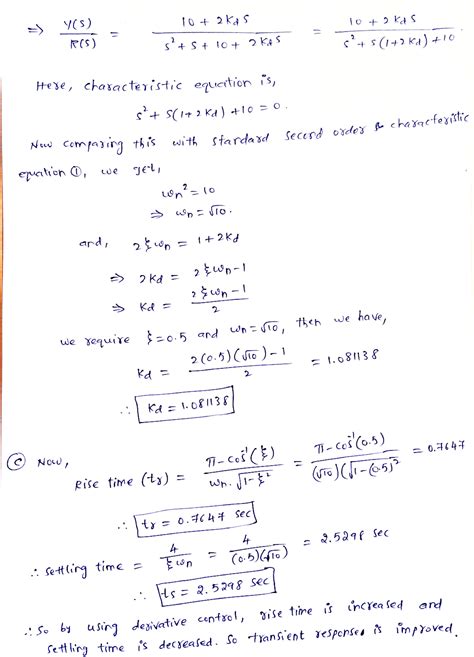 ⇒ Y(S)/R(S) = (10 + 2KdS)/(S² + S + 10 + 2KdS) = (10 + 2KdS)/(S² + S(1+2Kd) + 10)
Here, characteristic equation is,
S² + S(1+2Kd) + 10 = 0.
Now comparing this with standard second order characteristic
equation ①, we get,
ωn² = 10
⇒ ωn = √10.
and, 2ξωn = 1+2Kd
⇒ 2Kd = 2ξωn-1
⇒ Kd = (2ξωn-1)/2
we require ξ=0.5 and ωn=√10, then we have,
Kd = (2(0.5)(√10)-1)/2 = 1.081138
∴ Kd = 1.081138
ⓒ Now,
Rise time (tr) = (π-cos⁻¹(ξ))/(ωn.√(1-ξ²)) = (π-cos⁻¹(0.5))/((√10)(√(1-(0.5)²)) = 0.7647
∴ tr = 0.7647 sec
∴ settling time = 4/(ξωn) = 4/((0.5)(√10)) = 2.5298 sec
∴ ts = 2.5298 sec
∴ So by using derivative control, rise time is increased and
settling time is decreased. So transient response is improved.